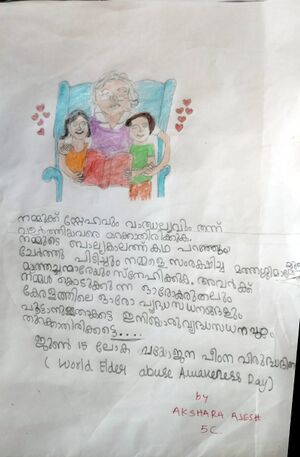 നമുക്ക് സ്നേഹവും വാത്സല്യവും തന്ന്
വളർത്തിയവരെ മറക്കാതിരിക്കുക.
നമ്മുടെ ബാല്യകാലത്ത് കഥ പറഞ്ഞും
ചേർത്തു പിടിച്ചും നമ്മളെ സംരക്ഷിച്ച
സ്നേഹിക്കുക. അവർക്ക്
നമ്മൾ കൊടുക്കുന്ന ഓരോ കരുതലും
കേരളത്തിലെ ഓരോ വൃദ്ധസദനങ്ങളും
ഇനിയൊരു വൃദ്ധസദനം
തുറക്കാതിരിക്കട്ടെ.....
ജൂൺ 15 ലോക വയോജന പീഡന വിരുദ്ധദിനം
( World Elder abuse Awareness Day)
by
AKSHARA AJESH
5C.